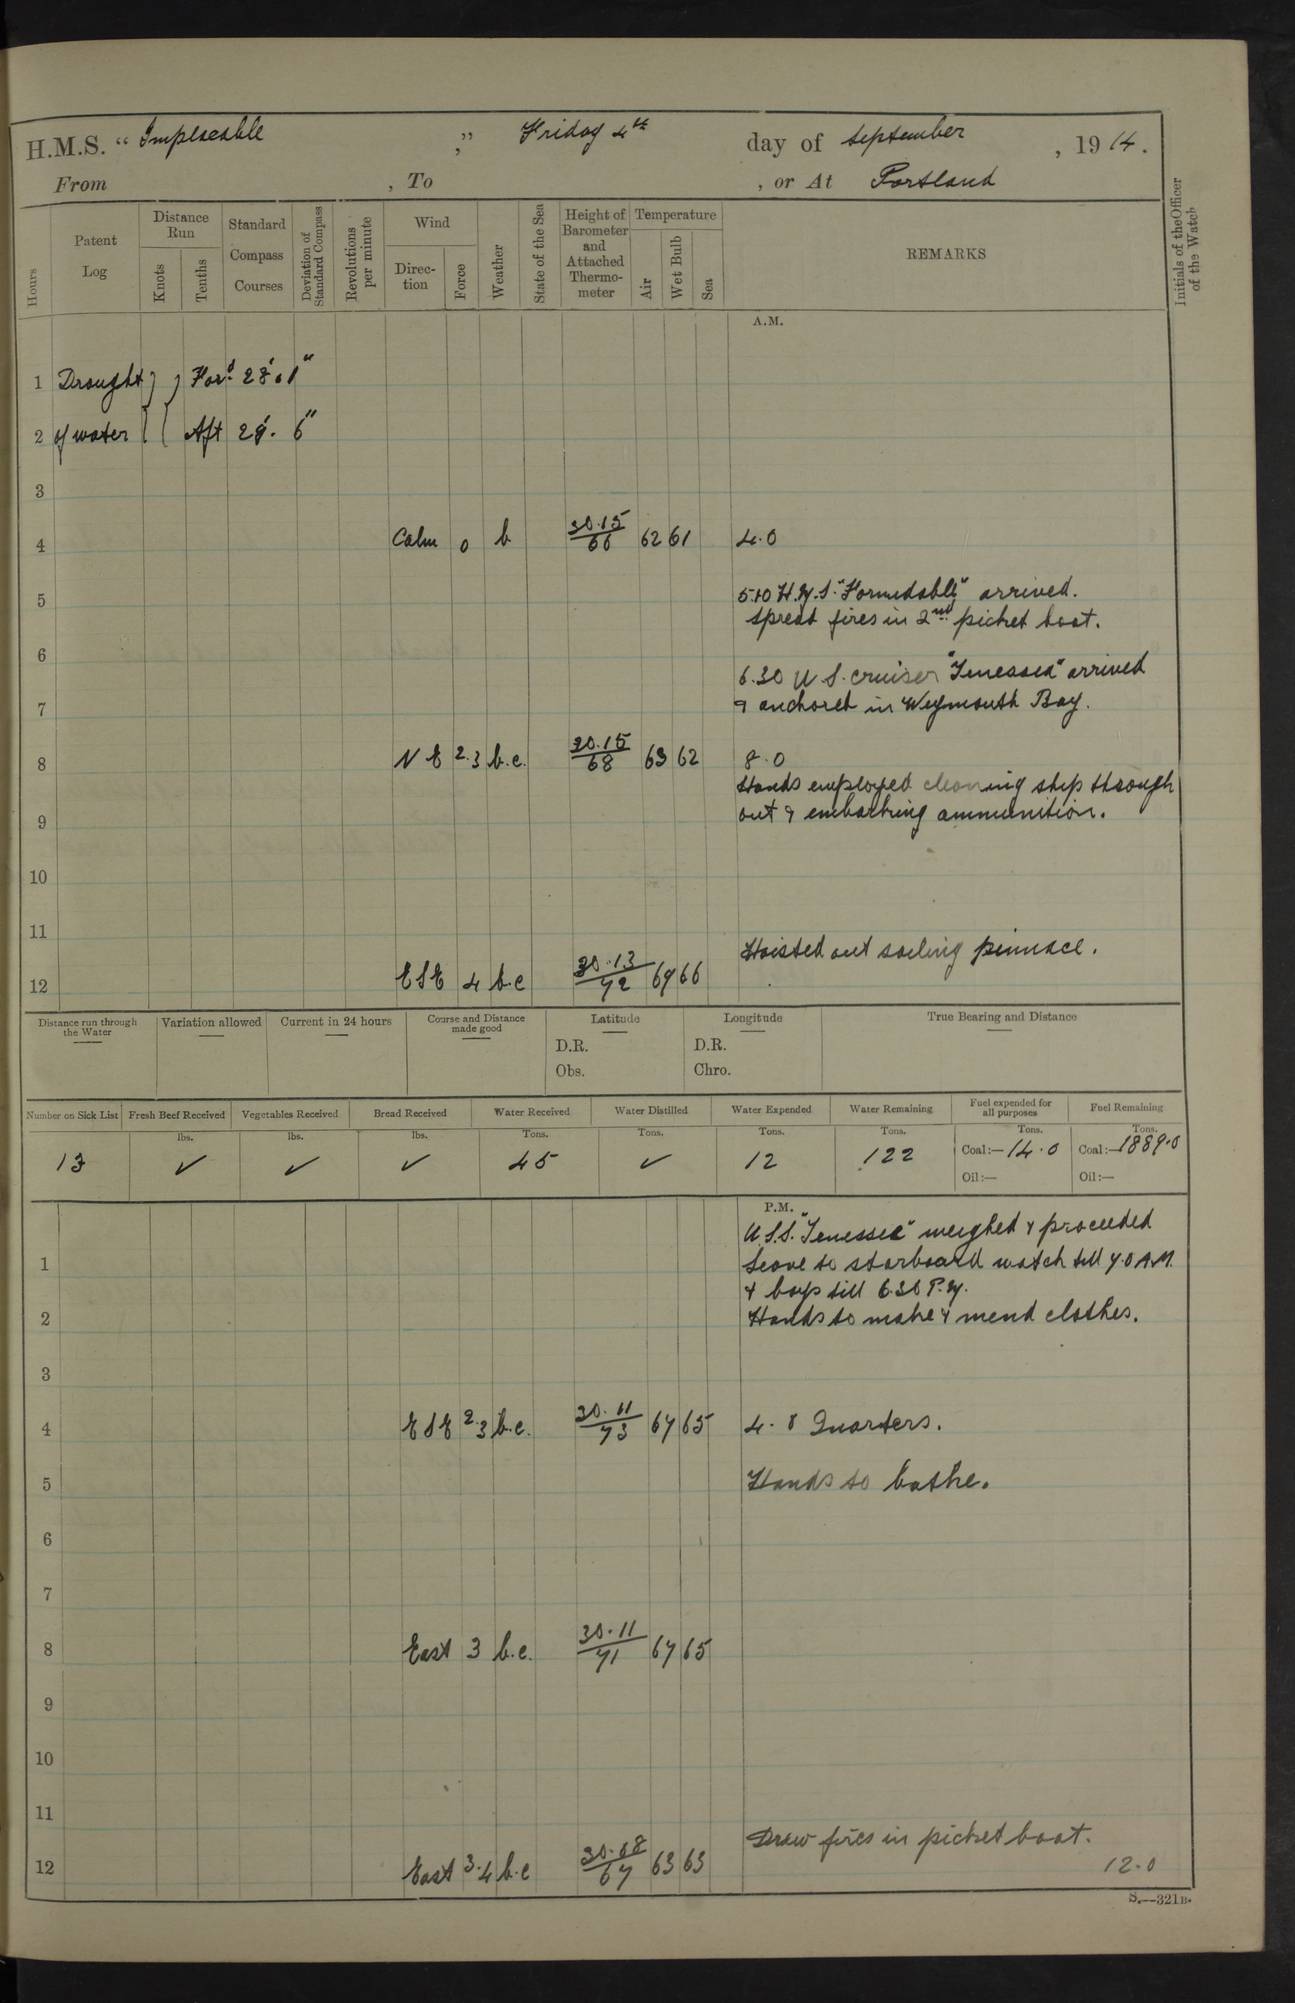 H.M.S. “ Implacable ,” Friday 4th day of September , 19 14.
From , To , or At Portland
Hours
Patent Log
Distance Run
Knots
Tenths
Standard Compass Courses
Deviation of Standard Compass
Revolutions per minute
Wind
Direc-tion
Force
Weather
State of the Sea
Height of Barometer and Attached Thermo-meter
Temperature
Air
Wet Bulb
Sea
REMARKS
Initials of the Officer of the Watch
A.M.
1 Draught } } Ford. 28' 01"
2 of water { { Aft 29'. 6"
3
4 Calm 0 b 30.15/66 62 61 4.0
5 5.10 H.M.S. "Formidable" arrived.
Spread fires in 2nd picket boat.
6
6.30 U.S. cruiser "Tenessea" arrived
7 & anchored in Weymouth Bay.
8 N E 2.3 b.c. 30.15/68 63 62 8.0
Hands employed cleaning ship through
9 out & embarking ammunition.
10
11
Hoisted out sailing pinnace.
12 ESE 4 b.c 30.13/72 69 66
Distance run through the Water
Variation allowed
Current in 24 hours
Course and Distance made good
Latitude
D.R.
Obs.
Longitude
D.R.
Chro.
True Bearing and Distance
Number on Sick List
Fresh Beef Received
Vegetables Received
Bread Received
Water Received
Water Distilled
Water Expended
Water Remaining
Fuel expended for all purposes
Fuel Remaining
lbs. lbs. lbs. Tons. Tons. Tons. Tons. Tons. Tons.
13 ✓ ✓ ✓ 45 ✓ 12 122 Coal:—14.0 Coal:—1889.0
Oil:— Oil:—
P.M.
U.S.S. "Tenessee" weighed & proceeded
1 Leave to starboard watch till 7.0 A.M.
& boys till 6.30 P.M.
2 Hands to make & mend clothes.
3
4 ESE 2.3 b.c. 30.11/73 67 65 4.0 Quarters.
5 Hands to bathe.
6
7
8 East 3 b.c. 30.11/71 67 65
9
10
11
Draw fires in picket boat.
12 East 3.4 b.c 30.08/67 63 63 12.0
S.—321B.